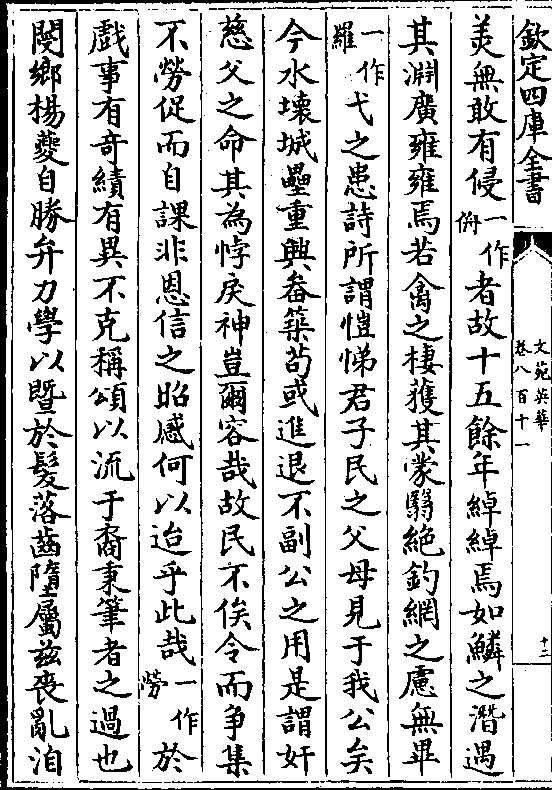 欽定四庫全書
文苑英華
卷八百十一
十二
羙無敢有侵一作侜者故十五餘年綽綽焉如鱗之潛遇
其淵廣雍雍焉若禽之棲獲其蒙翳絶釣網之慮無畢
一作羅弋之患詩所謂愷悌君子民之父母見于我公矣
今水壊城壘重興畚築茍或進退不副公之用是謂奸
慈父之命其為悖戾神豈爾容哉故民不俟令而爭集
不勞促而自課非恩信之昭感何以迨乎此哉一作勞於
戲事有奇績有異不克稱頌以流于裔秉筆者之過也
閿鄉楊夔自勝弁力學以暨於髪落齒墮屬兹喪亂洎